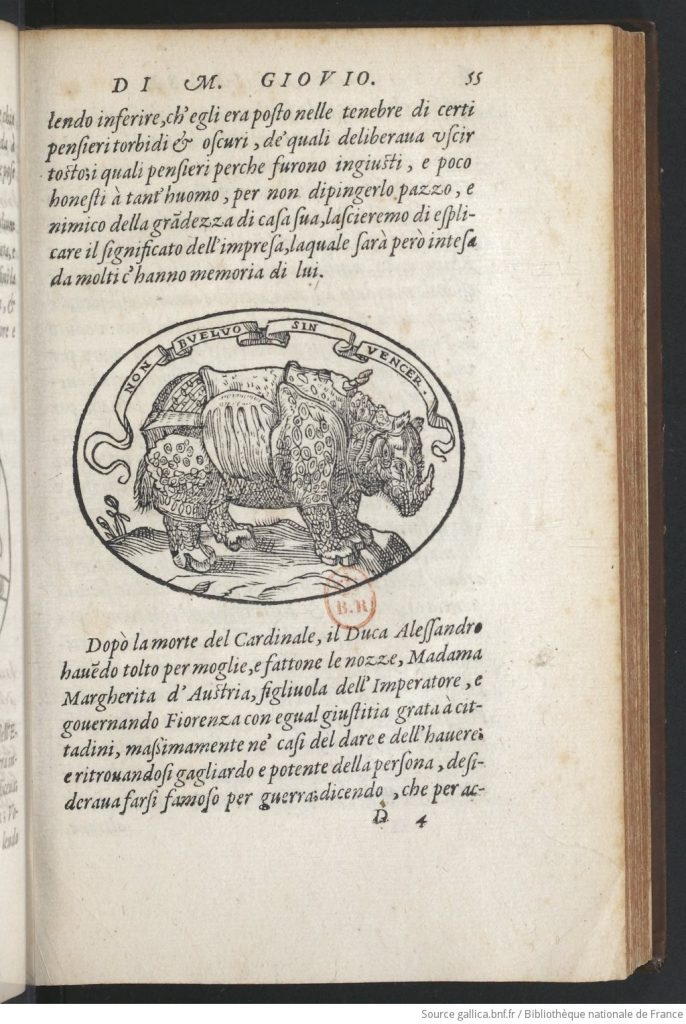 DI M. GIOVIO. 55
lendo inferire, ch'egli era posto nelle tenebre di certi
pensieri torbidi & oscuri, de' quali deliberaua vscir
tosto; i quali pensieri perche furono ingiusti, e poco
honesti à tant'huomo, per non dipingerlo pazzo, e
nimico della grãdezza di casa sua, lascieremo di espli-
care il significato dell'impresa, laquale sarà però intesa
da molti c'hanno memoria di lui.
NON BVELVO SIN VENCER.
B.R
Dopò la morte del Cardinale, il Duca Alessandro
hauẽdo tolto per moglie, e fattone le nozze, Madama
Margherita d'Austria, figliuola dell'Imperatore, e
gouernando Fiorenza con egual giustitia grata à cit-
tadini, massimamente ne' casi del dare e dell'hauere:
e ritrouandosi gagliardo e potente della persona, desi-
deraua farsi famoso per guerra; dicendo, che per ac-
D 4
Source gallica.bnf.fr / Bibliothèque nationale de France